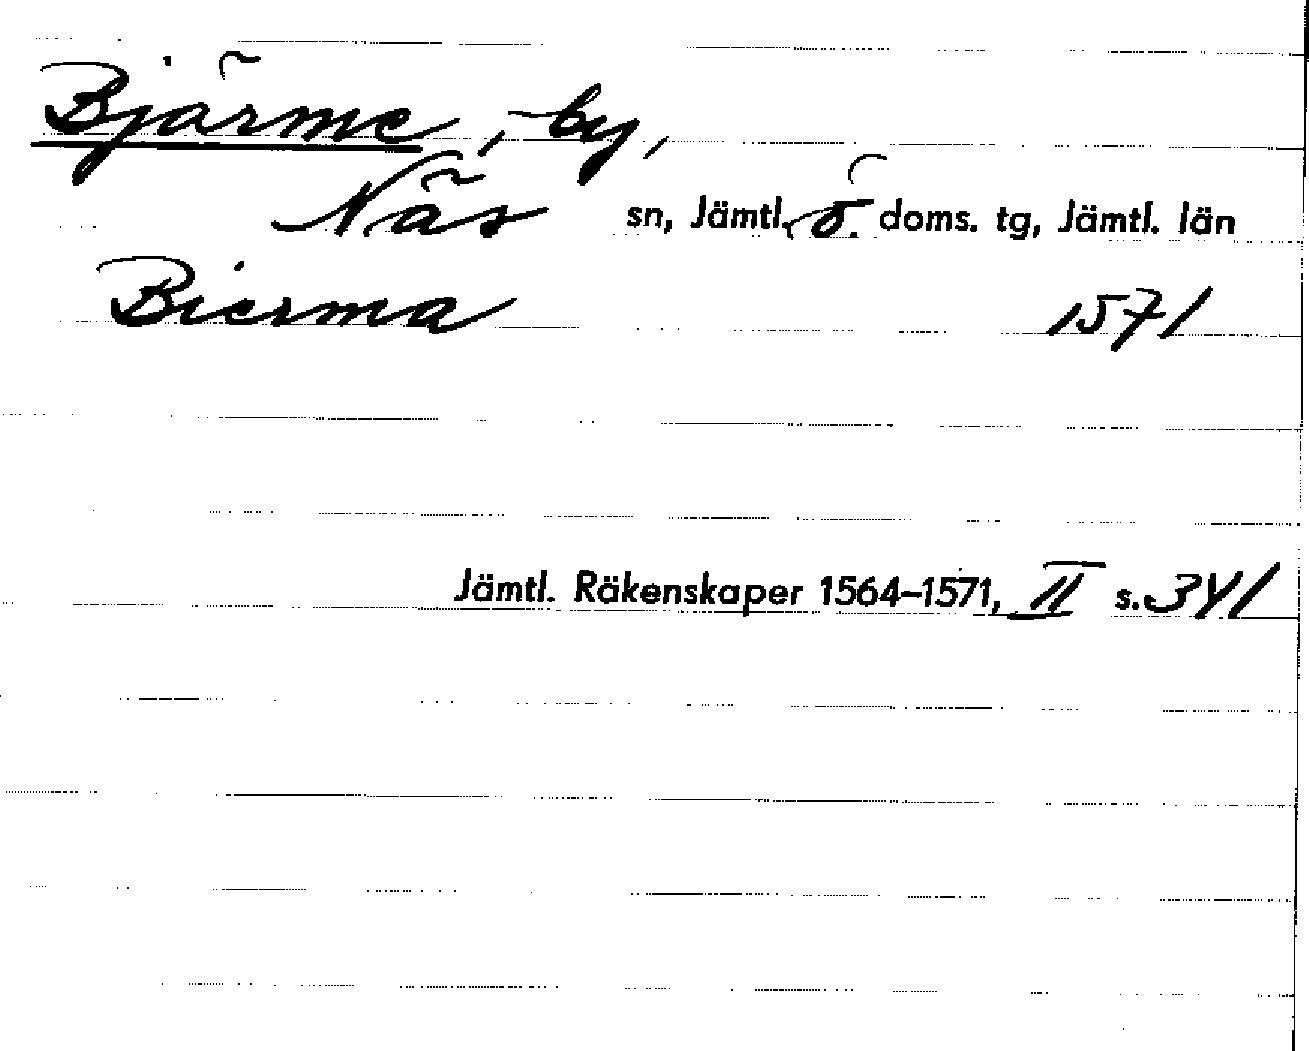 Bjärme, by,
Näs sn, Jämtl. ö. doms. tg, Jämtl. län
Bierma 1571
Jämtl. Räkenskaper 1564–1571, II s. 341